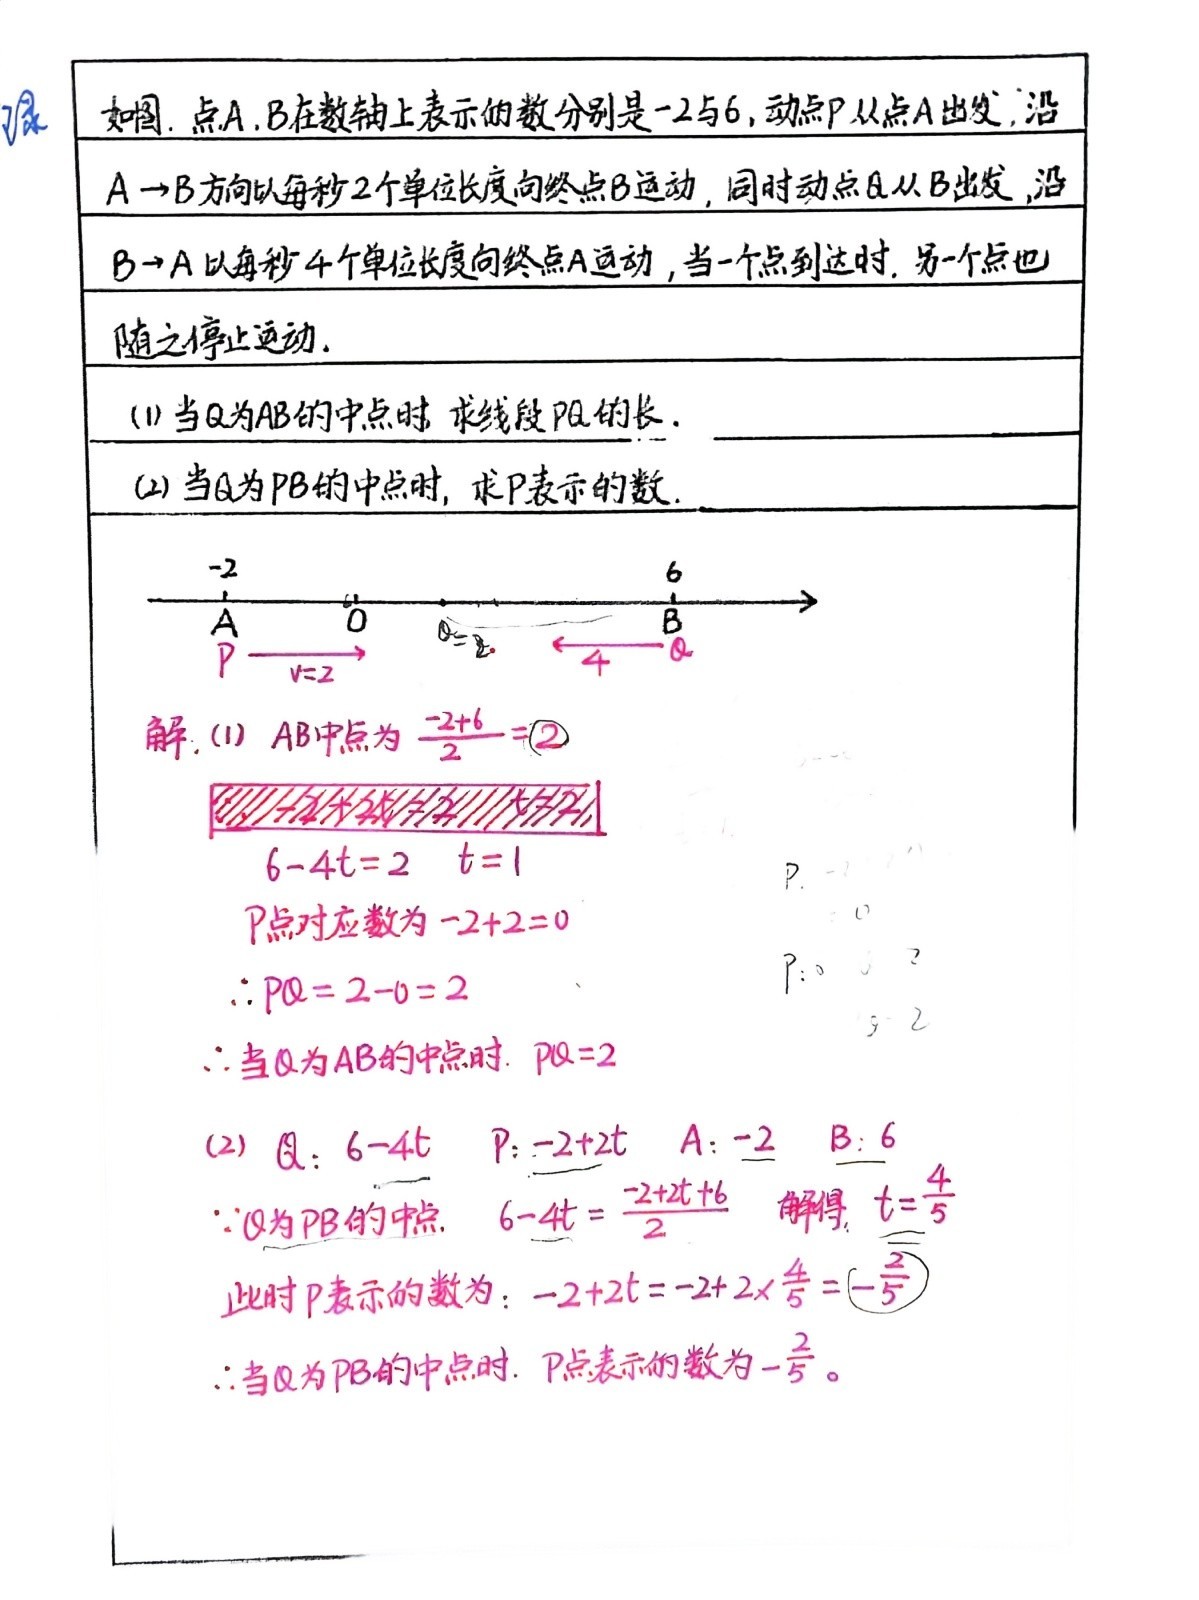 如图.点A.B在数轴上表示的数分别是-2与6,动点P从点A出发,沿
A→B方向以每秒2个单位长度向终点B运动,同时动点Q从B出发,沿
B→A以每秒4个单位长度向终点A运动,当一个点到达时.另一个点也
随之停止运动.
(1)当Q为AB的中点时,求线段PQ的长.
(2)当Q为PB的中点时,求P表示的数.
-2 6
A O B
P v=2 4 Q
解:(1) AB中点为 (-2+6)/2 =2
6-4t=2 t=1
P点对应数为-2+2=0
∴PQ=2-0=2
∴当Q为AB的中点时.PQ=2
(2) Q: 6-4t P:-2+2t A:-2 B:6
∵Q为PB的中点. 6-4t=(-2+2t+6)/2 解得: t=4/5
此时P表示的数为: -2+2t=-2+2×4/5=-2/5
∴当Q为PB的中点时.P点表示的数为-2/5。